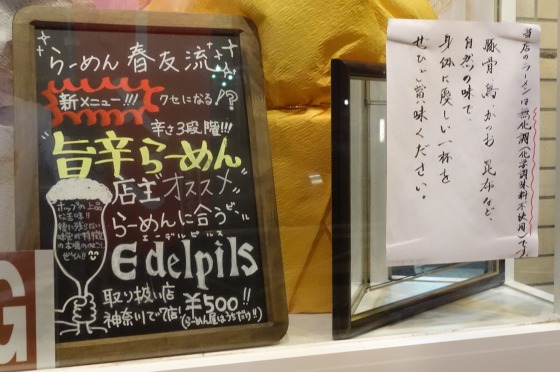 らーめん 春友流
新メニュー!!!
クセになる!?
辛さ3段階!!!
旨辛らーめん
店主オススメ
らーめんに合うビール
エーデルピルス
Edelpils
取り扱い店
神奈川で7店!
¥500!!
(らーめん屋はうちだけ!!)
ホップの上品
な苦味!!
後に残らない
ぜひ!!
当店のラーメンは無化調(化学調味料不使用)です。
豚骨 鳥 かつお 昆布など、
自然の味で、
身体に優しい一杯を
ぜひご賞味ください。
G